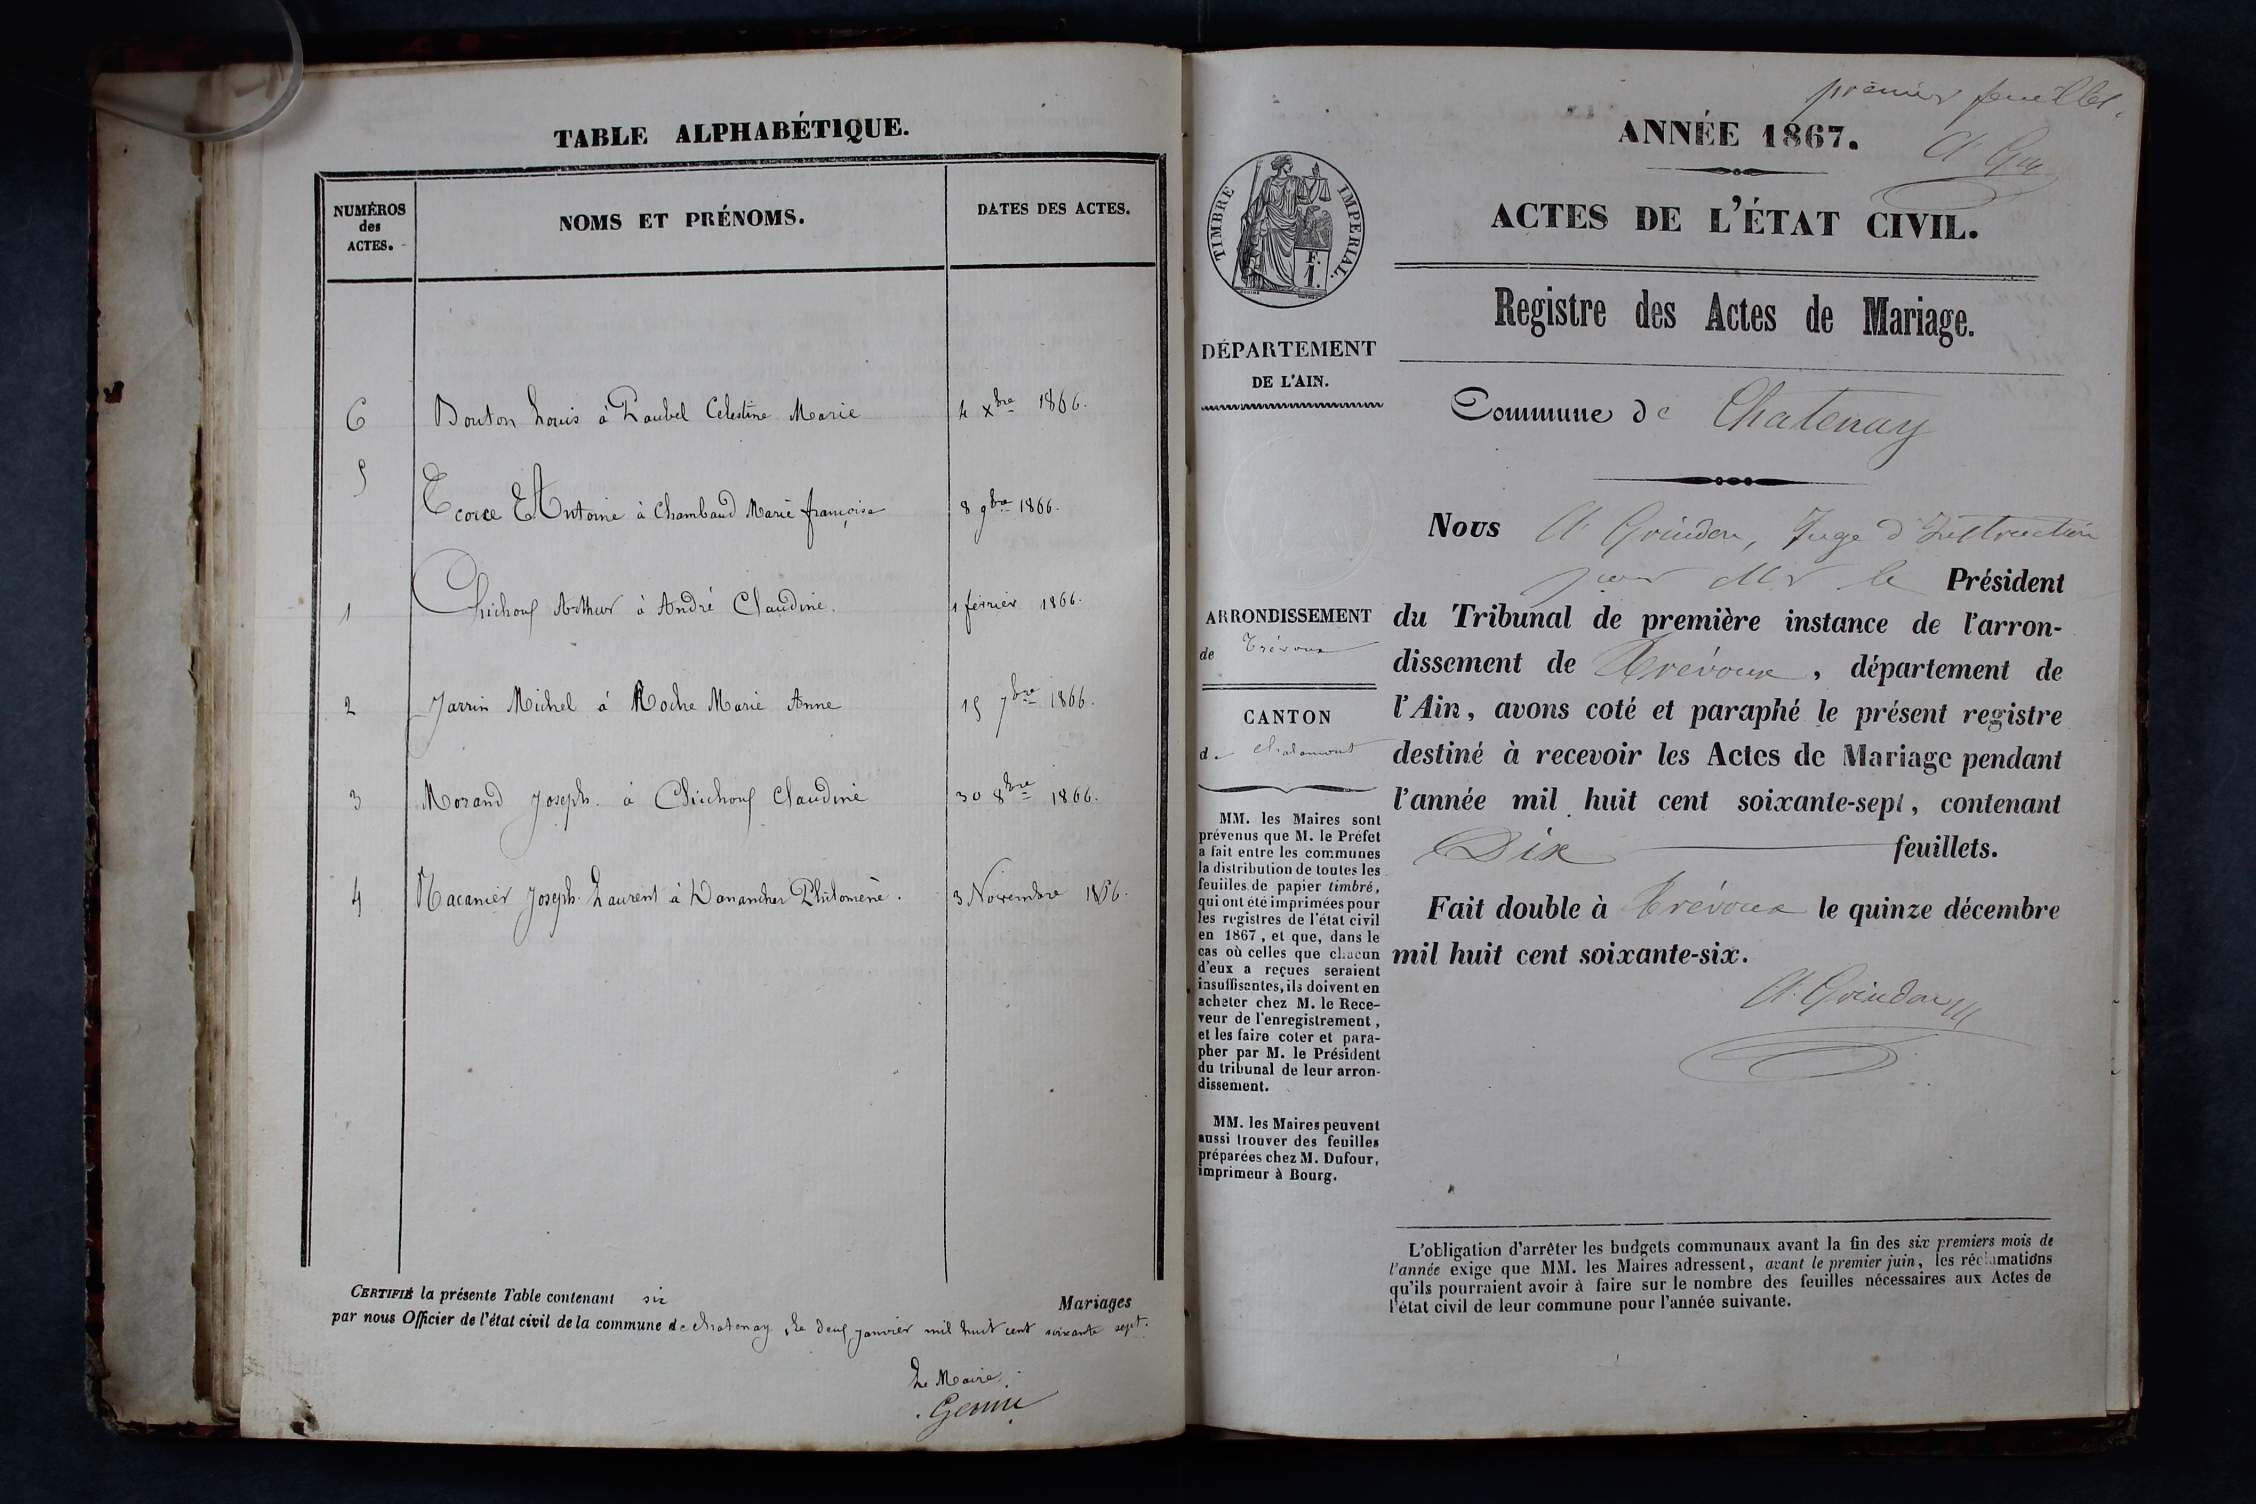 TABLE ALPHABÉTIQUE.
NUMÉROS
des
ACTES.
NOMS ET PRÉNOMS.
DATES DES ACTES.
6 Bouton Louis à Paubel Celestine Marie 4 Xbre 1866.
5 Ecorce Antoine à Chambaud Marie françoise 8 9bre 1866.
1 Chichoux Arthur à André Claudine. 1 février 1866.
2 Jarrin Michel à Roche Marie Anne 15 7bre 1866.
3 Morand Joseph à Chichoux Claudine 30 8bre 1866.
4 Racanier Joseph Laurent à Danancher Philomène. 3 Novembre 1866.
CERTIFIÉ la présente Table contenant six Mariages
par nous Officier de l'état civil de la commune de Chatenay, le deux janvier mil huit cent soixante sept.
Le Maire.
premier feuillet.
ANNÉE 1867.
ACTES DE L'ÉTAT CIVIL.
Registre des Actes de Mariage.
Commune de Chatenay
TIMBRE IMPÉRIAL.
F.
1.
DÉPARTEMENT
DE L'AIN.
ARRONDISSEMENT
de Trévoux
CANTON
de Chalamont
MM. les Maires sont
prévenus que M. le Préfet
a fait entre les communes
la distribution de toutes les
feuilles de papier timbré,
qui ont été imprimées pour
les registres de l'état civil
en 1867, et que, dans le
cas où celles que chacun
d'eux a reçues seraient
insuffisantes, ils doivent en
acheter chez M. le Rece-
veur de l'enregistrement,
et les faire coter et para-
pher par M. le Président
du tribunal de leur arron-
dissement.
MM. les Maires peuvent
aussi trouver des feuilles
préparées chez M. Dufour,
imprimeur à Bourg.
Nous A Grindon, Juge d'Instruction
pour Mr le Président
du Tribunal de première instance de l'arron-
dissement de Trévoux, département de
l'Ain, avons coté et paraphé le présent registre
destiné à recevoir les Actes de Mariage pendant
l'année mil huit cent soixante-sept, contenant
Dix feuillets.
Fait double à Trévoux le quinze décembre
mil huit cent soixante-six.
A. Grindon
L'obligation d'arrêter les budgets communaux avant la fin des six premiers mois de
l'année exige que MM. les Maires adressent, avant le premier juin, les réclamations
qu'ils pourraient avoir à faire sur le nombre des feuilles nécessaires aux Actes de
l'état civil de leur commune pour l'année suivante.